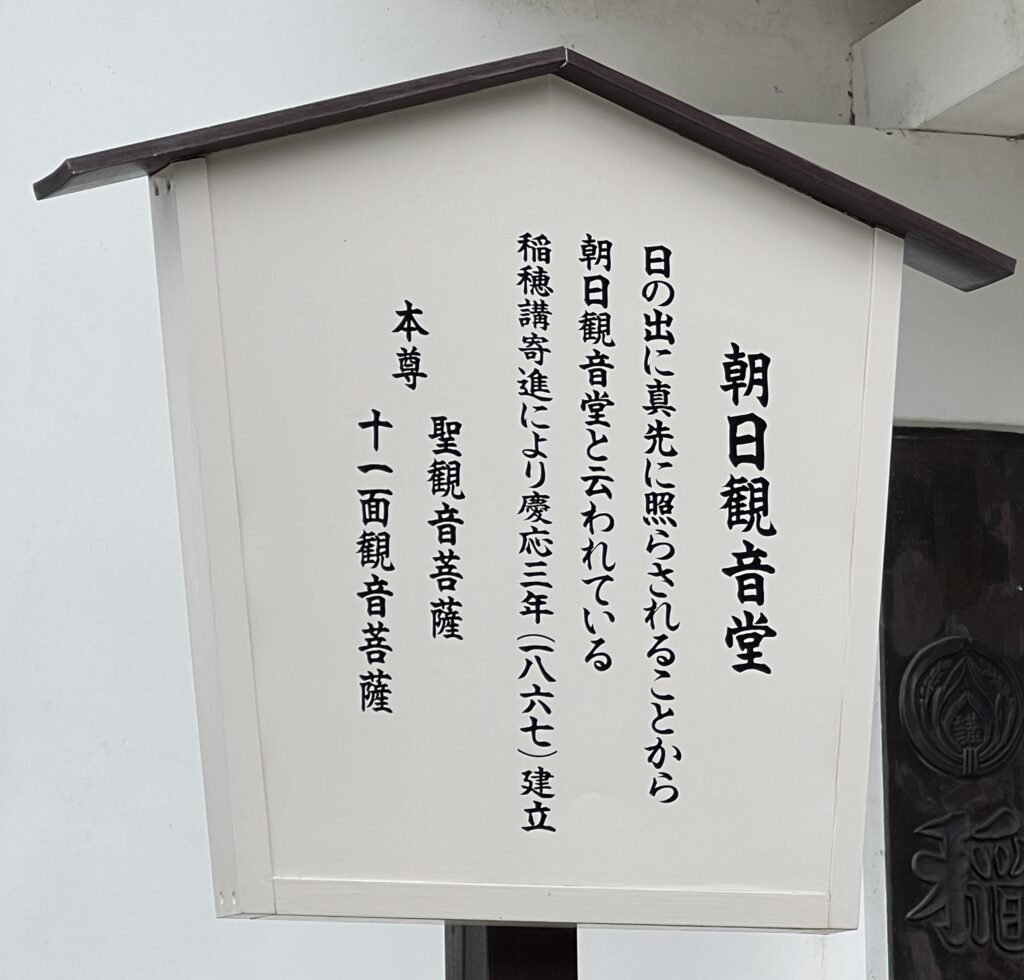 朝日観音堂
日の出に真先に照らされることから
朝日観音堂と云われている
稲穂講寄進により慶応三年(一八六七)建立
本尊
聖観音菩薩
十一面観音菩薩
稲